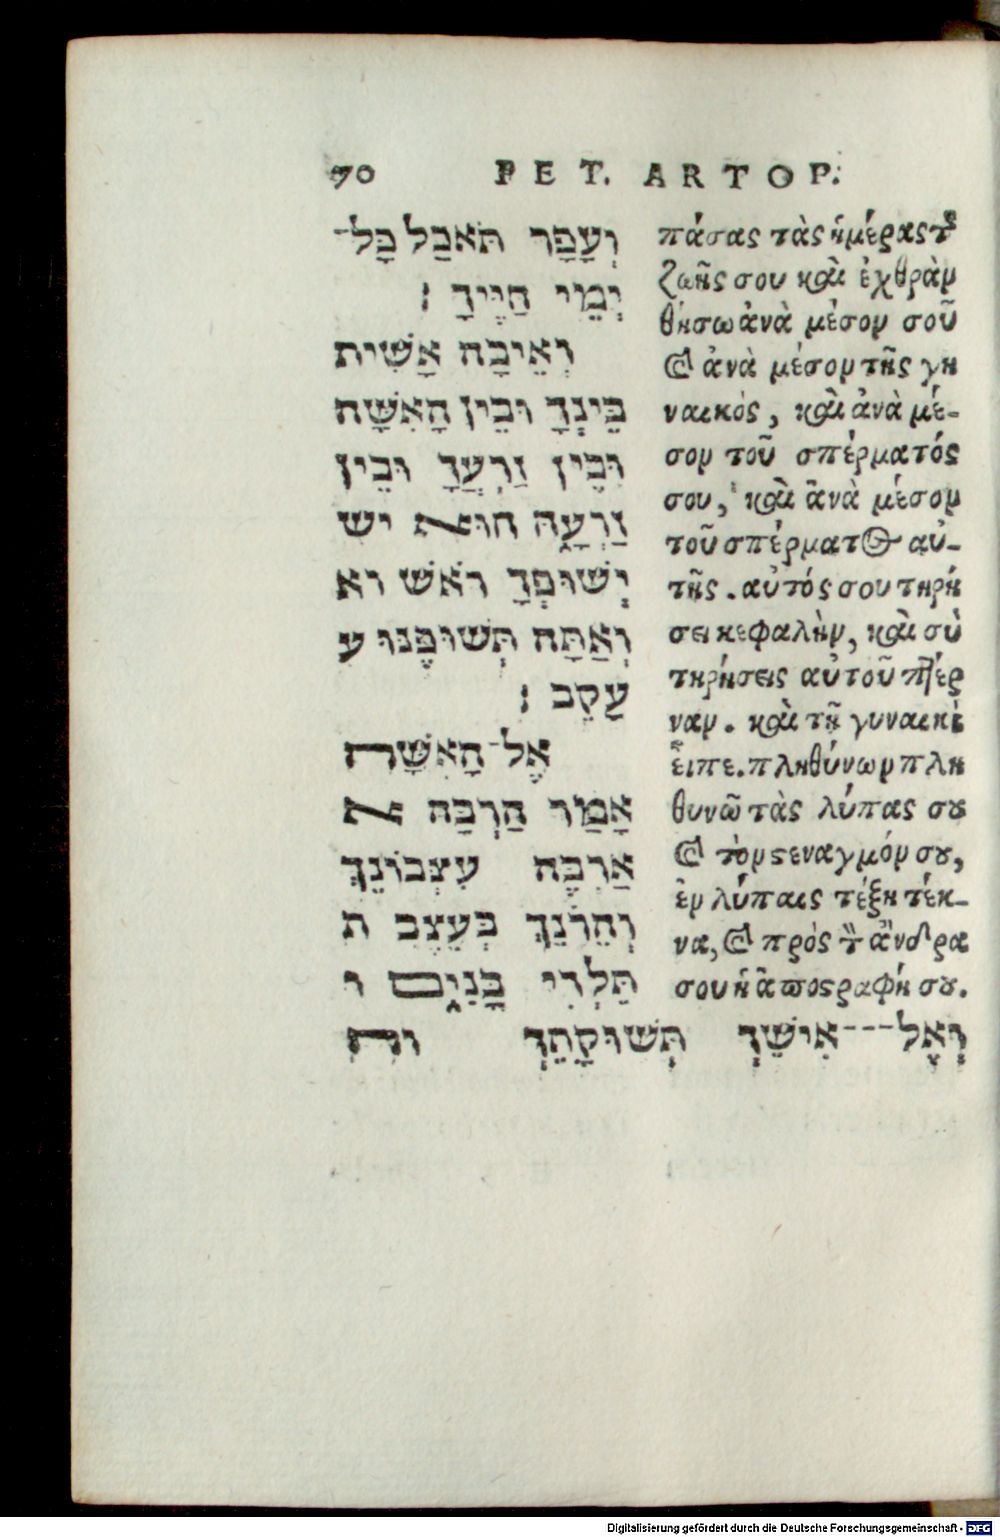 70 PET. ARTOP.
וְעָפָר תֹּאכַל כָּל־
יְמֵי חַיֶּיךָ׃
וְאֵיבָה אָשִׁית
בֵּינְךָ וּבֵין הָאִשָּׁה
וּבֵין זַרְעֲךָ וּבֵין
זַרְעָהּ הוּא יש
יְשׁוּפְךָ רֹאשׁ וא
וְאַתָּה תְּשׁוּפֶנּוּ ע
עָקֵב׃
אֶל־הָאִשָּׁה
אָמַר הַרְבָּה א
אַרְבֶּה עִצְּבוֹנֵךְ
וְהֵרֹנֵךְ בְּעֶצֶב ת
תֵּלְדִי בָנִים ו
וְאֶל־־־אִישֵׁךְ תְּשׁוּקָתֵךְ וה
πάσας τὰς ἡμέρας τ͂
ζωῆς σου καὶ ἐχθρὰν
θήσω ἀνὰ μέσον σοῦ
& ἀνὰ μέσον τῆς γη
ναικός, καὶ ἀνὰ μέ-
σον τοῦ σπέρματός
σου, καὶ ἀνὰ μέσον
τοῦ σπέρματος αὐ-
τῆς. αὐτός σου τηρή
σει κεφαλὴν, καὶ σὺ
τηρήσεις αὐτοῦ πτέρ
ναν. καὶ τῇ γυναικὶ
εἶπε. πληθύνων πλη
θυνῶ τὰς λύπας σου
& τὸν στεναγμόν σου,
ἐν λύπαις τέξη τέκ-
να, & πρὸς τὸν ἄνδρα
σου ἡ ἀποστραφή σου.